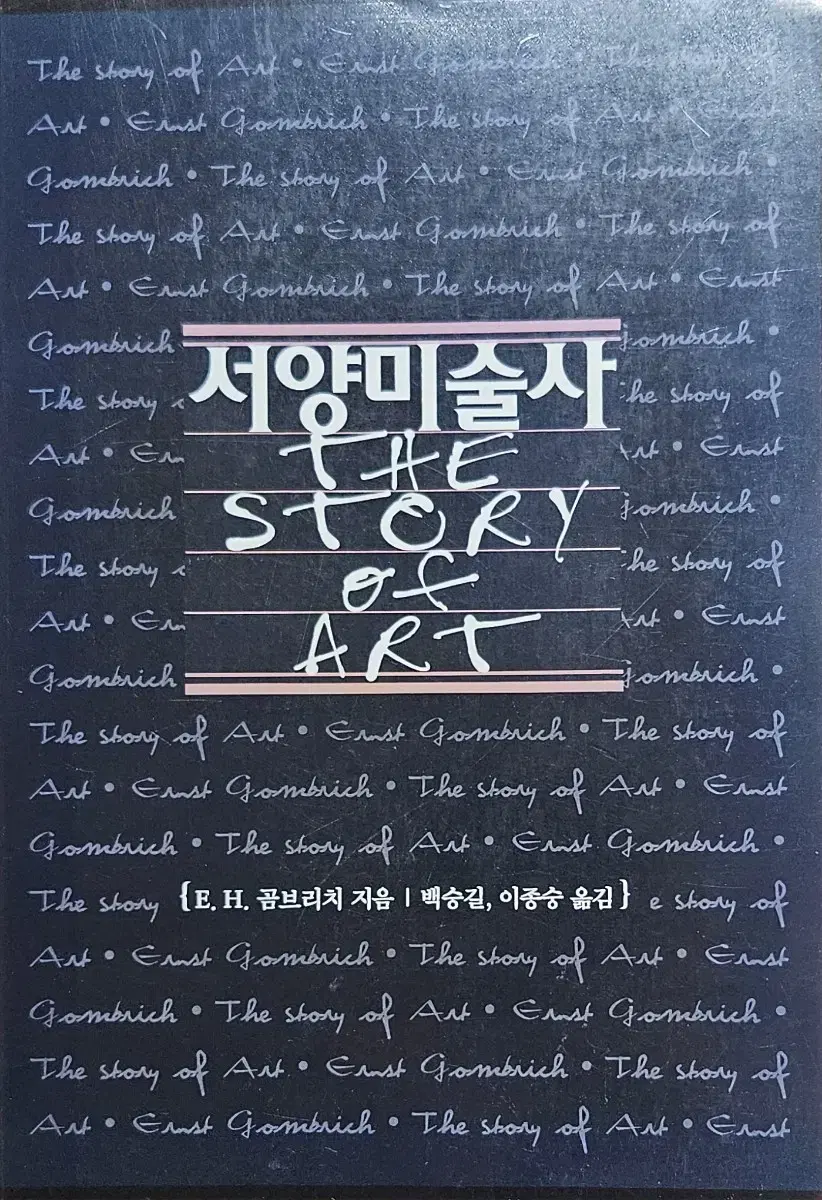 The story of Art • Ernst Gombrich • The story of
Art • Ernst Gombrich • The story of Art • Ernst
Gombrich • The story of Art • Ernst Gombrich •
The story of Art • Ernst Gombrich • The story of
Art • Ernst Gombrich • The story of Art • Ernst
Gombrich
ombrich •
서양미술사
The story
he story of
Art • Er
rt • Ernst
THE
Gombrich
ombrich •
STORY
The story
he story of
of
Art • Er
rt • Ernst
ART
Gombrich
ombrich •
The story of Art • Ernst Gombrich • The story of
Art • Ernst Gombrich • The story of Art • Ernst
Gombrich • The story of Art • Ernst Gombrich •
The story {E. H. 곰브리치 지음 | 백승길, 이종숭 옮김} e story of
Art • Ernst Gombrich • The story of Art • Ernst
Gombrich • The story of Art • Ernst Gombrich •
The story of Art • Ernst Gombrich • The story of
Art • Ernst Gombrich • The story of Art • Ernst